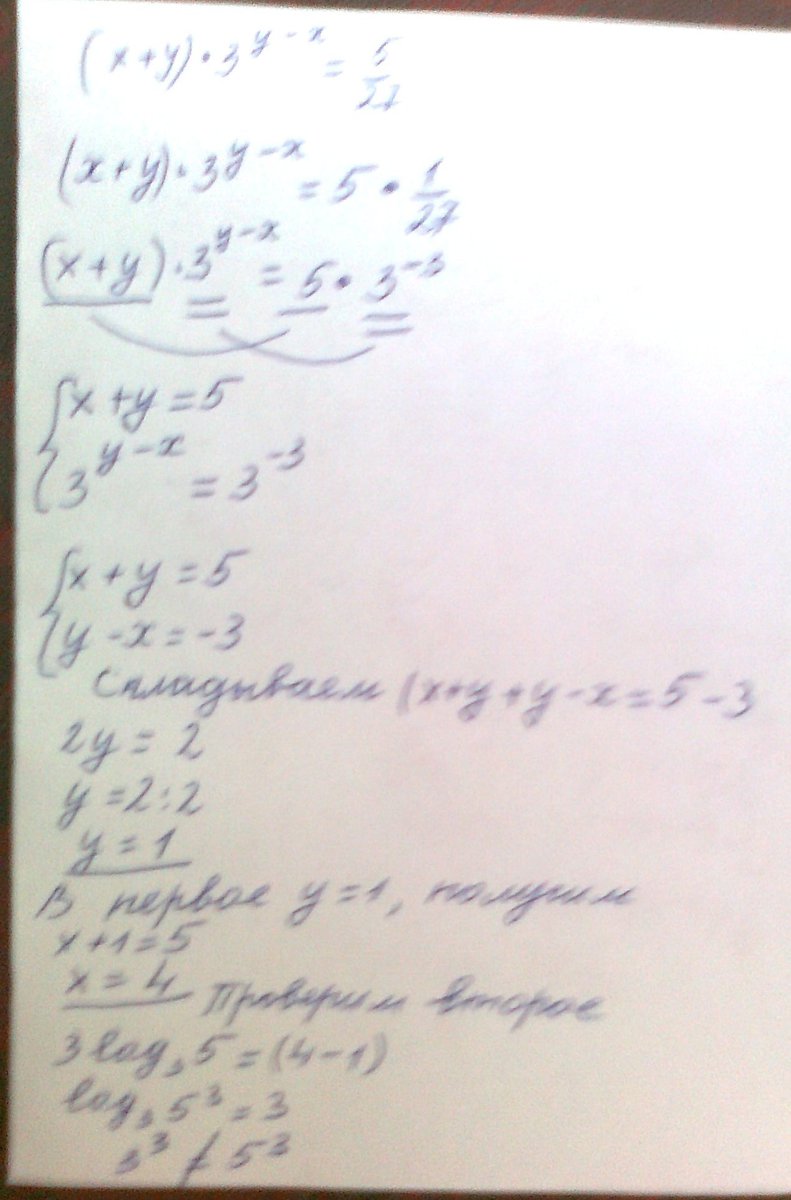 (x+y)·3^(y-x) = 5/27
(x+y)·3^(y-x) = 5·1/27
(x+y)·3^(y-x) = 5·3^(-3)
{x+y=5
{3^(y-x) = 3^(-3)
{x+y=5
{y-x=-3
Складываем (x+y+y-x=5-3
2y=2
y=2:2
y=1
В первое y=1, получим
x+1=5
x=4 Проверим второе
3log₃5=(4-1)
log₃5³=3
3³≠5³